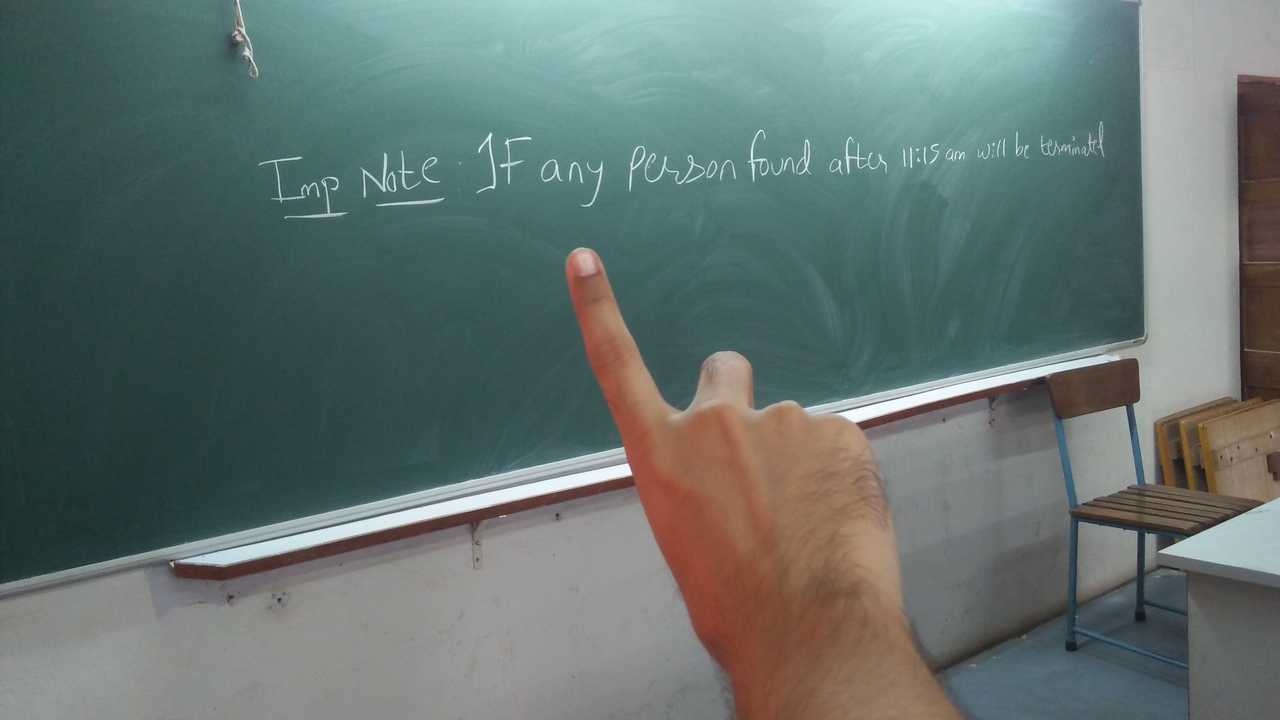 Imp Note: IF any person found after 11:15 am will be terminated